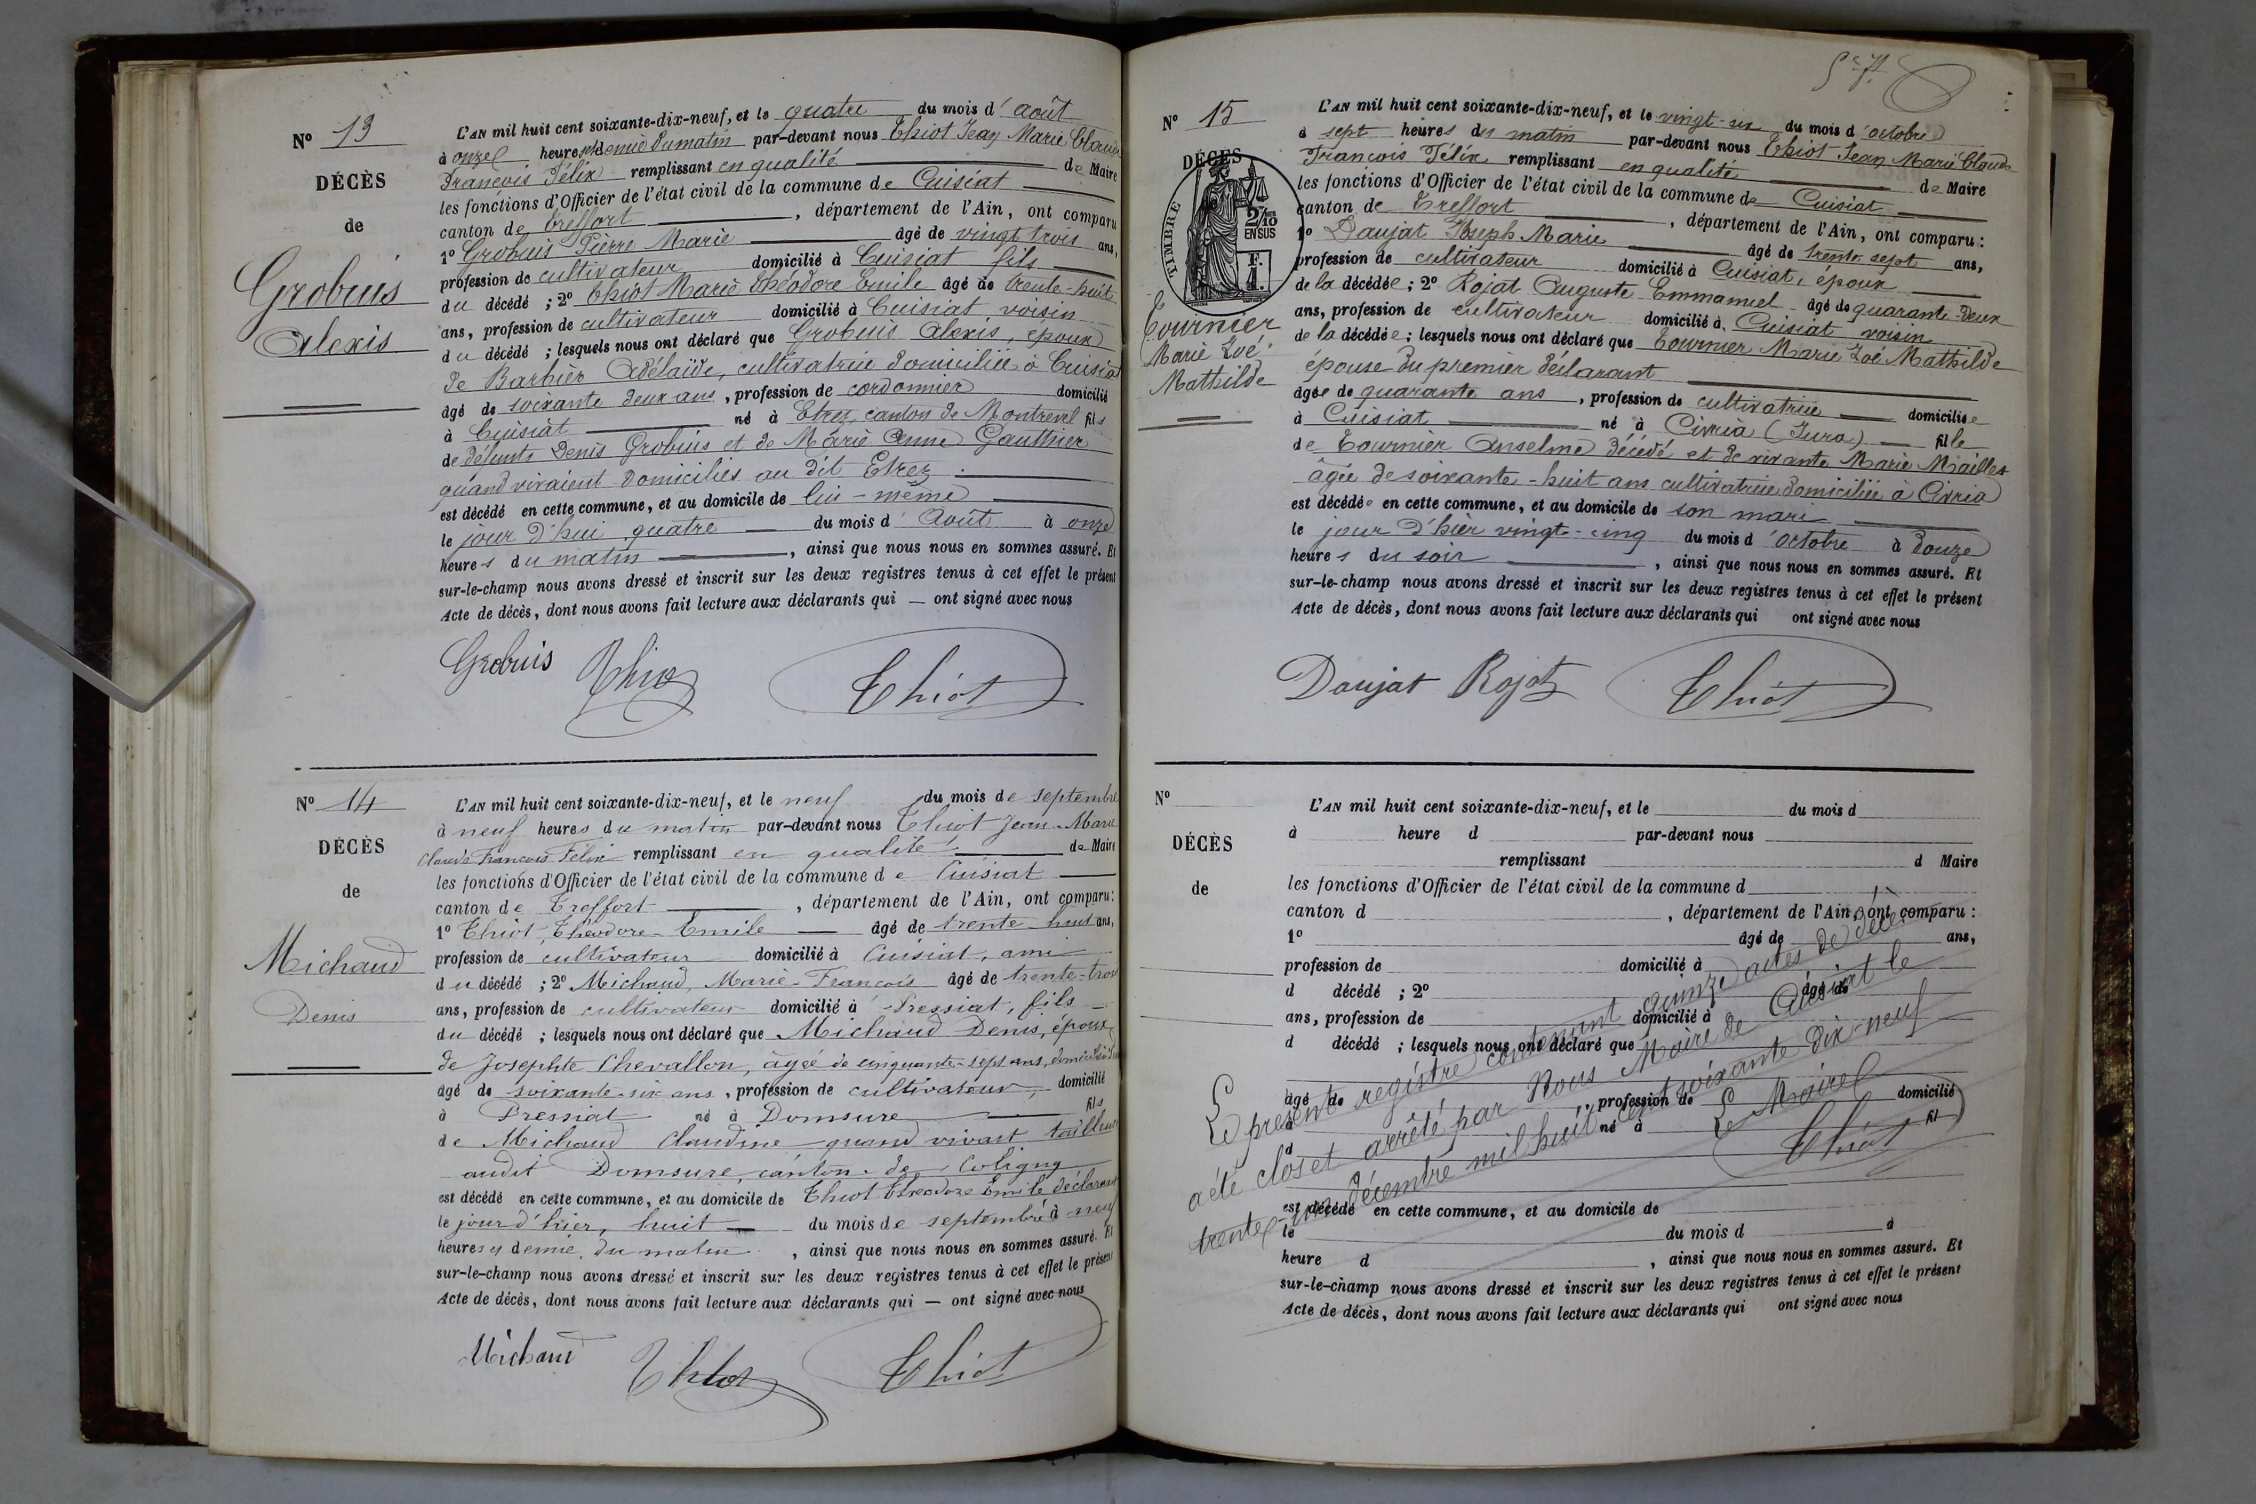 Nº 13
DÉCÈS
de
Grobuis
Alexis
L'AN mil huit cent soixante-dix-neuf, et le quatre du mois d'août
à onze heures et demie du matin par-devant nous Thiot Jean Marie Claude
François Félix remplissant en qualité de Maire
les fonctions d'Officier de l'état civil de la commune de Cuisiat
canton de Treffort, département de l'Ain, ont comparu
1º Grobuis Pierre Marie âgé de vingt trois ans,
profession de cultivateur domicilié à Cuisiat fils
du décédé ; 2º Thiot Marie Théodore Emile âgé de trente-huit
ans, profession de cultivateur domicilié à Cuisiat voisin
du décédé ; lesquels nous ont déclaré que Grobuis Alexis, époux
de Barbier Adélaïde, cultivatrice domiciliée à Cuisiat
âgé de soixante deux ans, profession de cordonnier domicilié
à Cuisiat né à Etrez, canton de Montrevel fils
de défunts Denis Grobuis et de Marie Anne Gauthier
quand vivaient domiciliés au dit Etrez.
est décédé en cette commune, et au domicile de lui-même
le jour d'hui quatre du mois d'Août à onze
heures du matin, ainsi que nous nous en sommes assuré. Et
sur-le-champ nous avons dressé et inscrit sur les deux registres tenus à cet effet le présent
Acte de décès, dont nous avons fait lecture aux déclarants qui — ont signé avec nous
Grobuis Thiot Thiot
Nº 14
DÉCÈS
de
Michaud
Denis
L'AN mil huit cent soixante-dix-neuf, et le neuf du mois de septembre
à neuf heures du matin par-devant nous Thiot Jean-Marie
Claude François Félix remplissant en qualité de Maire
les fonctions d'Officier de l'état civil de la commune de Cuisiat
canton de Treffort, département de l'Ain, ont comparu :
1º Thiot, Théodore-Emile âgé de trente-huit ans,
profession de cultivateur domicilié à Cuisiat, ami
du décédé ; 2º Michaud, Marie-François âgé de trente-trois
ans, profession de cultivateur domicilié à Pressiat, fils
du décédé ; lesquels nous ont déclaré que Michaud Denis, époux
de Josephte Chevallon, âgée de cinquante-sept ans, domiciliée
âgé de soixante-six ans, profession de cultivateur, domicilié
à Pressiat né à Domsure fils
de Michaud Claudine quand vivait tailleur
audit Domsure, canton de Coligny
est décédé en cette commune, et au domicile de Thiot Théodore Emile déclarant
le jour d'hier, huit du mois de septembre à neuf
heures et demie du matin, ainsi que nous nous en sommes assuré. Et
sur-le-champ nous avons dressé et inscrit sur les deux registres tenus à cet effet le présent
Acte de décès, dont nous avons fait lecture aux déclarants qui — ont signé avec nous
Michaud Thiot Thiot
Nº 15
DÉCÈS
TIMBRE
2/10 EN SUS
F. 1.
Tournier
Marie Zoé
Mathilde
L'AN mil huit cent soixante-dix-neuf, et le vingt-six du mois d'octobre
à sept heures du matin par-devant nous Thiot Jean Marie Claude
François Félix remplissant en qualité de Maire
les fonctions d'Officier de l'état civil de la commune de Cuisiat
canton de Treffort, département de l'Ain, ont comparu :
1º Daujat Joseph Marie âgé de trente sept ans,
profession de cultivateur domicilié à Cuisiat, époux
de la décédée ; 2º Rojat Auguste Emmanuel âgé de quarante-deux
ans, profession de cultivateur domicilié à Cuisiat voisin
de la décédée ; lesquels nous ont déclaré que Tournier Marie Zoé Mathilde
épouse du premier déclarant
âgée de quarante ans, profession de cultivatrice domiciliée
à Cuisiat né à Civria (Jura) fille
de Tournier Anselme décédé et de vivante Marie Maillet
âgée de soixante-huit ans cultivatrice domiciliée à Civria
est décédée en cette commune, et au domicile de son mari
le jour d'hier vingt-cinq du mois d'octobre à douze
heures du soir, ainsi que nous nous en sommes assuré. Et
sur-le-champ nous avons dressé et inscrit sur les deux registres tenus à cet effet le présent
Acte de décès, dont nous avons fait lecture aux déclarants qui ont signé avec nous
Daujat Rojat Thiot
Nº
DÉCÈS
de
L'AN mil huit cent soixante-dix-neuf, et le du mois d
à heure d par-devant nous
remplissant d Maire
les fonctions d'Officier de l'état civil de la commune d
canton d , département de l'Ain, ont comparu :
1º âgé de ans,
profession de domicilié à
d décédé ; 2º âgé de
ans, profession de domicilié à
d décédé ; lesquels nous ont déclaré que
âgé de , profession de domicilié
à né à fil
d
est décédé en cette commune, et au domicile de
le du mois d à
heure d , ainsi que nous nous en sommes assuré. Et
sur-le-champ nous avons dressé et inscrit sur les deux registres tenus à cet effet le présent
Acte de décès, dont nous avons fait lecture aux déclarants qui ont signé avec nous
Le présent registre contenant quinze actes de décès
a été clos et arrêté par Nous Maire de Cuisiat le
trente-un décembre mil huit cent soixante dix-neuf
Le Maire
Thiot